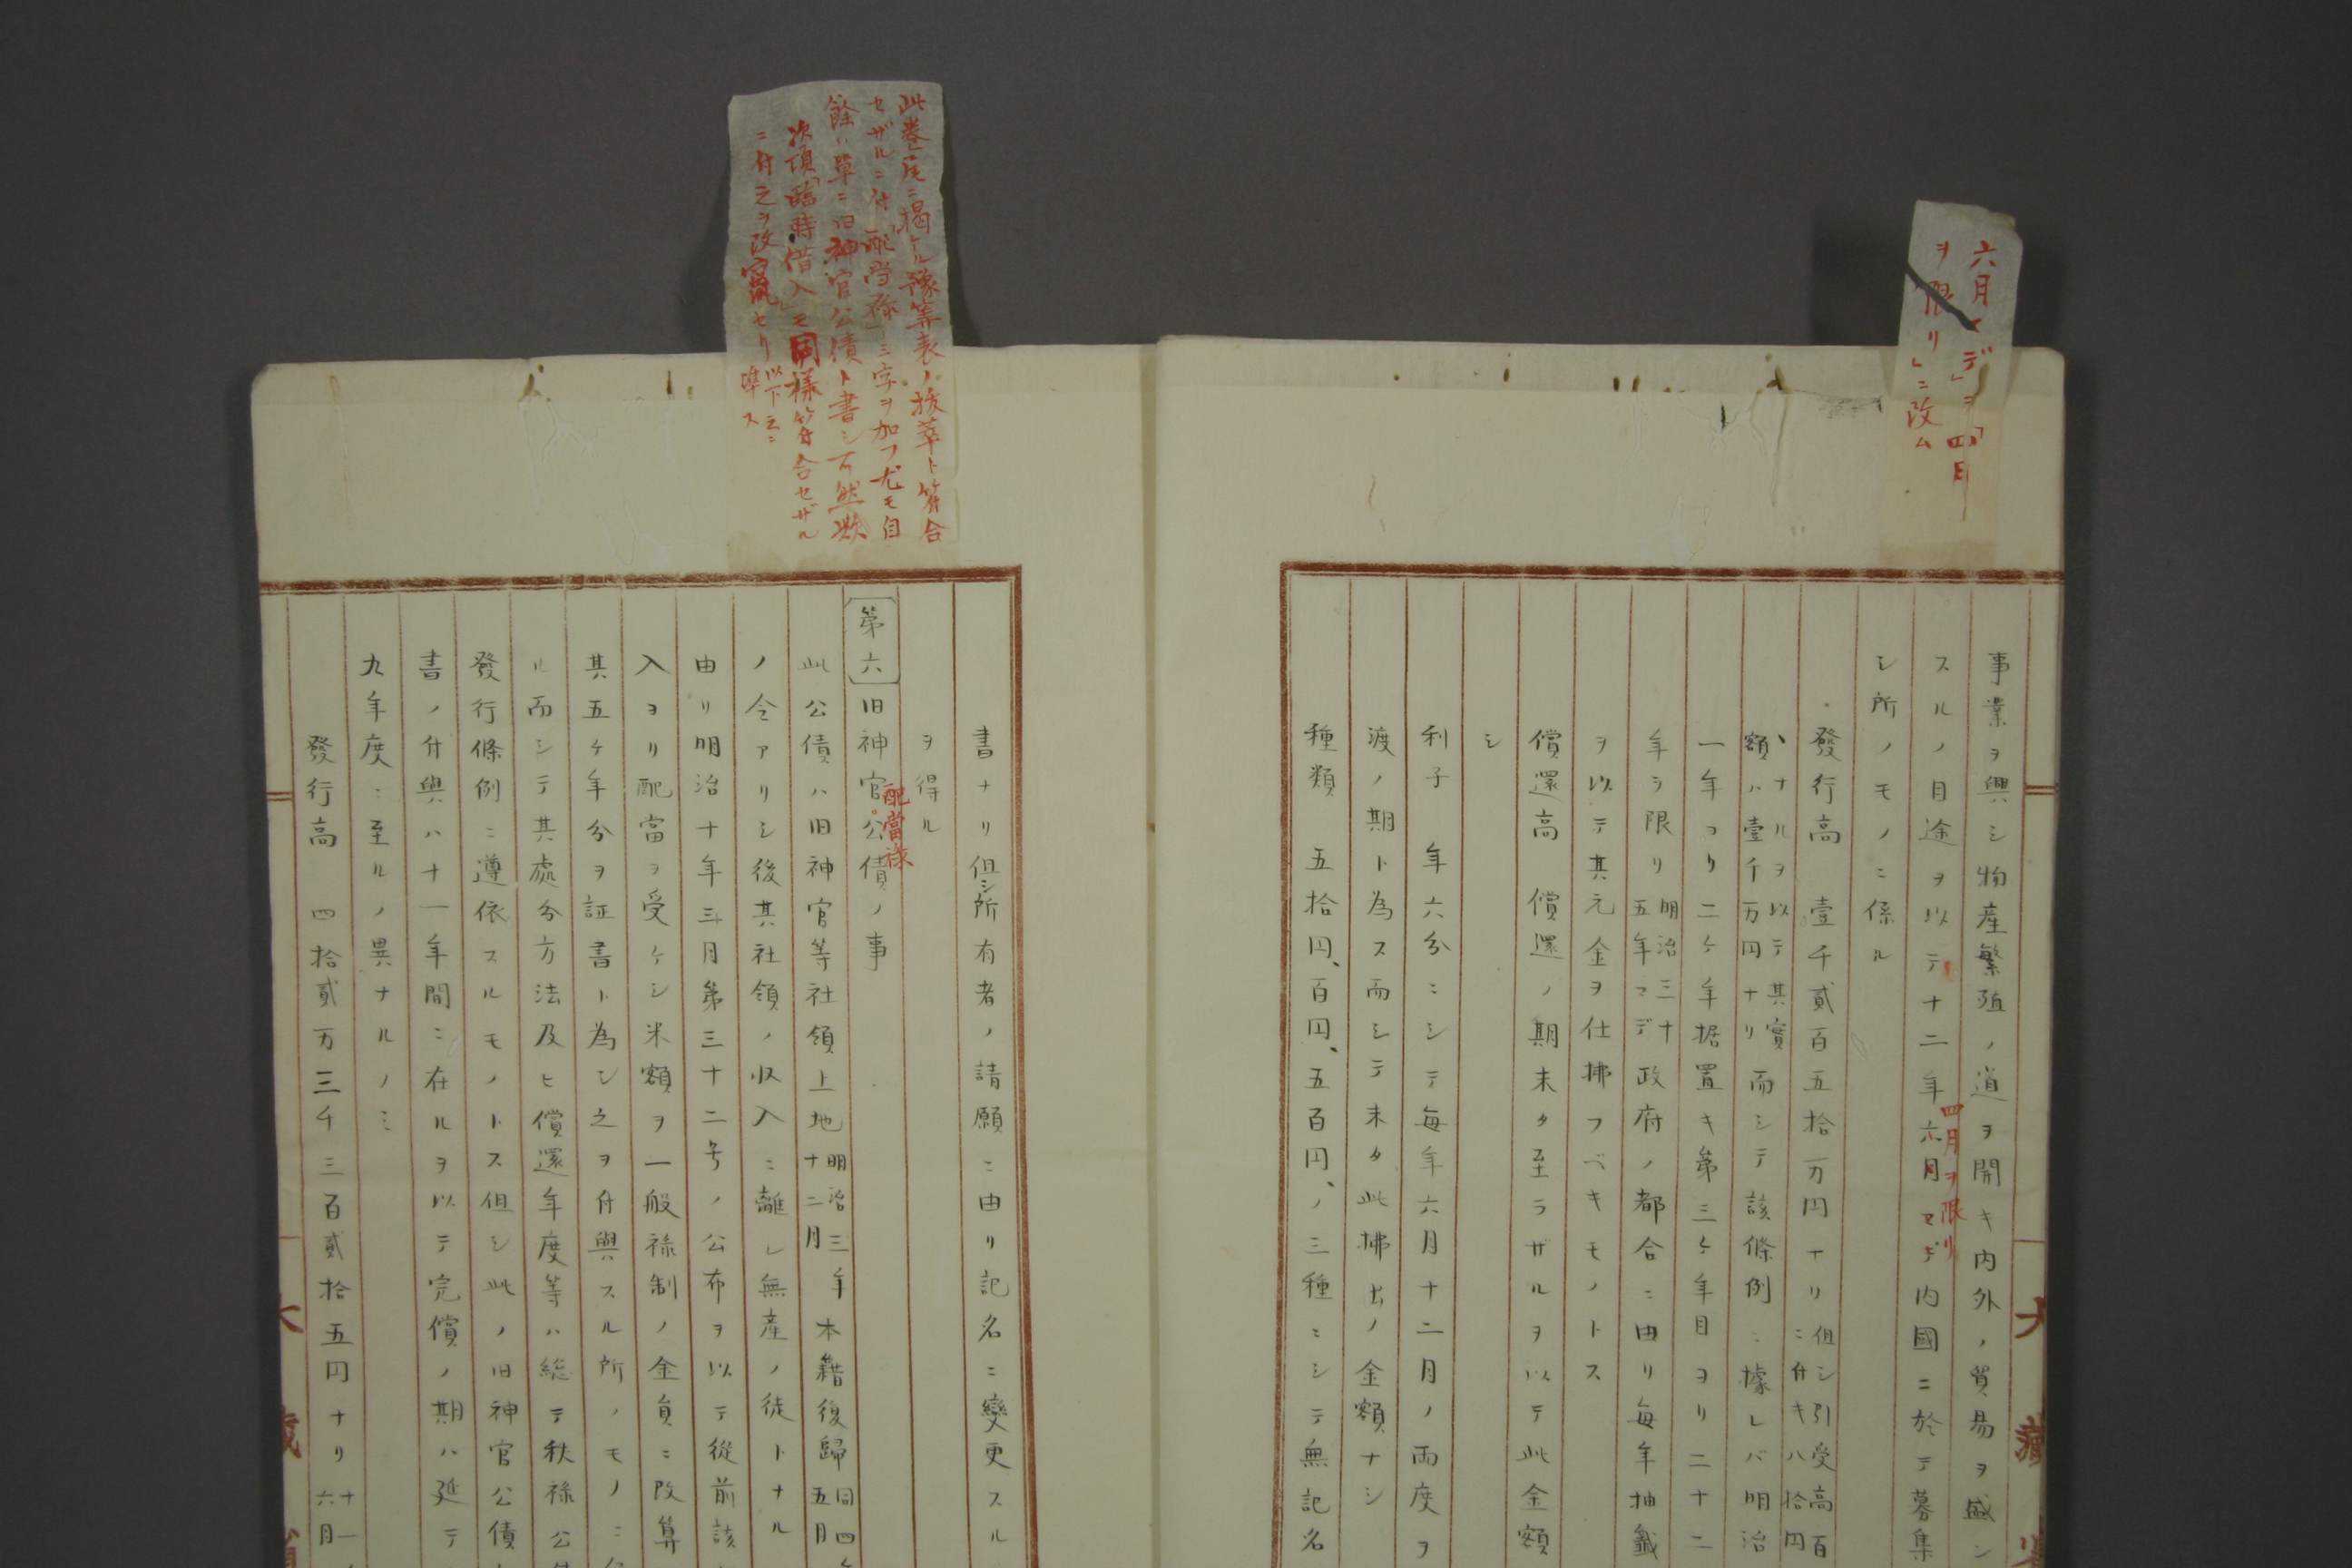 六月マデ」ヲ「四月
ヲ限リ」ニ改ム
事業ヲ興シ物産繁殖ノ道ヲ開キ内外ノ貿易ヲ盛ン
スルノ目途ヲ以テ十二年六月マデ内國ニ於テ募集
四月ヲ限リ
シ所ノモノニ係ル
發行高 壹千貳百五拾万円ナリ但シ引受高百
ニ付キ八拾円
ナルヲ以テ其實
額ハ壹千万円ナリ而シテ該條例ニ據レバ明治
一年ヨリ二ヶ年据置キ第三ヶ年目ヨリ二十二
年ヲ限リ明治三十
五年マデ政府ノ都合ニ由リ毎年抽籤
ヲ以テ其元金ヲ仕拂フベキモノトス
償還高 償還ノ期未タ至ラザルヲ以テ此金額
シ
利子 年六分ニシテ毎年六月十二月ノ両度ヲ
渡ノ期ト為ス而シテ未タ此拂出ノ金額ナシ
種類 五拾円、百円、五百円、ノ三種ニシテ無記名
大藏
此巻尾ニ掲ケル豫算表ノ抜萃ト符合
セザルニ付「配当禄」三字ヲ加フ尤モ自
餘ハ單ニ旧神官公債ト書シ有然歟
次項「臨時借入」モ同様符合セザル
ニ付之ヲ改竄セリ以下之ニ
準ス
書ナリ但シ所有者ノ請願ニ由リ記名ニ變更スル
ヲ得ル
第六 旧神官公債ノ事
配當禄
此公債ハ旧神官等社領上地明治三年
十二月本籍復歸同四
五月
ノ令アリシ後其社領ノ収入ニ離レ無産ノ徒トナル
由リ明治十年三月第三十二号ノ公布ヲ以テ從前該
入ヨリ配當ヲ受ケシ米額ヲ一般禄制ノ金員ニ改算
其五ヶ年分ヲ証書ト為シ之ヲ付與スル所ノモノニ
ル而シテ其處分方法及ヒ償還年度等ハ総テ秩禄公
發行條例ニ遵依スルモノトス但シ此ノ旧神官公債
書ノ付與ハ十一年間ニ在ルヲ以テ完償ノ期ハ延テ
九年度ニ至ルノ異ナルノミ
發行高 四拾貳万三千三百貳拾五円ナリ十一
六月